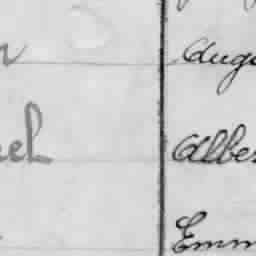 n Augu
uel Alber
Emm